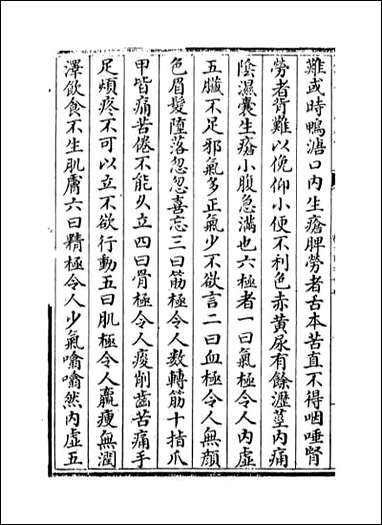 難或時鴨溏口内生瘡脾勞者舌本苦直不得咽唾腎
勞者背難以俛仰小便不利色赤黃尿有餘瀝莖内痛
陰濕囊生瘡小腹急滿也六極者一曰氣極令人内虛
五臟不足邪氣多正氣少不欲言二曰血極令人無顔
色眉髮墮落忽忽喜忘三曰筋極令人數轉筋十指爪
甲皆痛苦倦不能久立四曰骨極令人痠削齒苦痛手
足煩疼不可以立不欲行動五曰肌極令人羸瘦無潤
澤飲食不生肌膚六曰精極令人少氣噏噏然内虛五